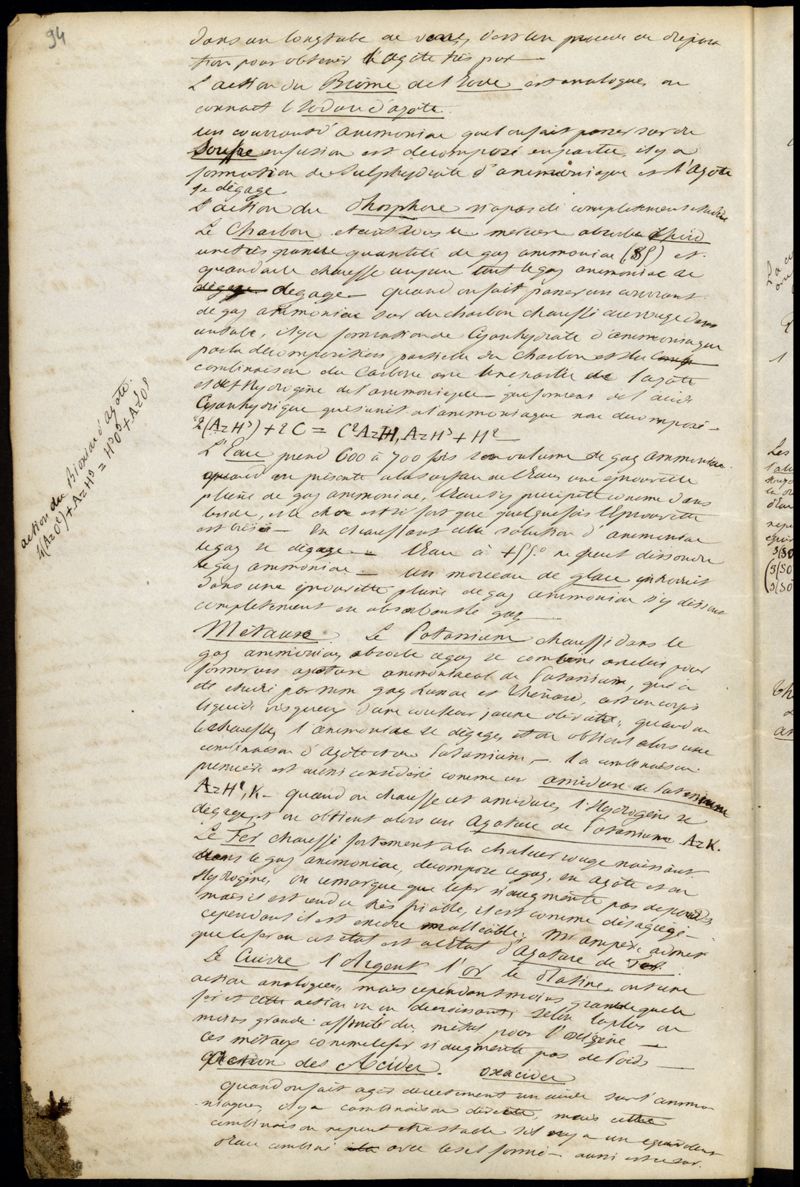 94
dans un long tube de verre, c'est un procédé de prépara
tion pour obtenir l'azote très pur —
L'action du Brôme de l'Iode est analogue, on
connait l'Iodure d'azote.
un courrant d'ammoniac qu'on fait passer sur du
Souffre en fusion est decomposé en partie, il y a
formation de Sulphydrate d'ammoniaque et l'Azote
se dégage
L'action du Phosphore n'a pas été completement étudiée
Le Charbon eteint sous le mercure absorbe
une très grande quantité de gaz ammoniac (85) et
quand on le chauffe un peu tout le gaz ammoniac se
dégage — quand on fait passer un courrant
de gaz ammoniac sur du charbon chauffé au rouge dans
un tube, il y a formation de Cyanhydrate d'ammoniaque
par la decomposition partielle du Charbon et la
combinaison du Carbone avec une partie de l'azote
et de l'Hydrogène de l'ammoniaque — qui forment de l'acide
Cyanhydrique qui s'unit à l'ammoniaque non decomposé —
2(AzH³) + 2C = C²AzH, AzH³ + H²
L'Eau prend 600 à 700 fois son volume de gaz ammoniac.
quand on présente à la surface de l'eau une éprouvette
pleine de gaz ammoniac, l'eau s'y précipite comme dans
le vide, et le choc est si fort que quelquefois l'éprouvette
est brisée — En chauffant la solution d'ammoniac
le gaz se dégage — L'eau à +55° ne peut dissoudre
le gaz ammoniac — un morceau de glace introduit
dans une éprouvette pleine de gaz ammoniac s'y dissout
completement en absorbant le gaz —
Métaux. Le Potassium chauffé dans le
gaz ammoniac, absorbe le gaz se combine avec lui pour
former un azoture ammoniacal de Potassium, qui a
été étudié par MM Gay Lussac et Thénard, c'est un corps
liquide visqueux d'une couleur jaune olivatre, quand on
le chauffe, l'ammoniac se dégage, et on obtient alors une
combinaison d'Azote et de Potassium — La combinaison
première est aussi considérée comme un amidure de Potassium
AzH², K — quand on chauffe cet amidure, l'Hydrogène se
dégage, et on obtient alors un Azoture de Potassium AzK.
Le Fer chauffé fortement à la chaleur rouge naissant
dans le gaz ammoniac, decompose le gaz, en azote et en
Hydrogène, on remarque que le fer n'augmente pas de poids
mais il est rendu très friable, il est comme désagrégé —
cependant il est encore malléable, Mr ampère admet
que le fer en cet état est à l'état d'Azoture de fer.
Le Cuivre l'Argent l'or le Platine, ont une
action analogue, mais cependant moins grande que le
fer et cette action va en decroissant selon la plus ou
moins grande affinité du métal pour l'oxigène —
ces métaux comme le fer n'augmente pas de Poids —
Action des Acides. oxacides
quand on fait agir directement un acide sur l'ammo-
niaque, il y a combinaison directe, mais cette
combinaison ne peut être stable s'il n'y a un équivalent
d'eau combiné avec le sel formé — aussi
action du Bioxide d'azote.
4(AzO²) + AzH³ = H³O³ + Az⁵O⁵